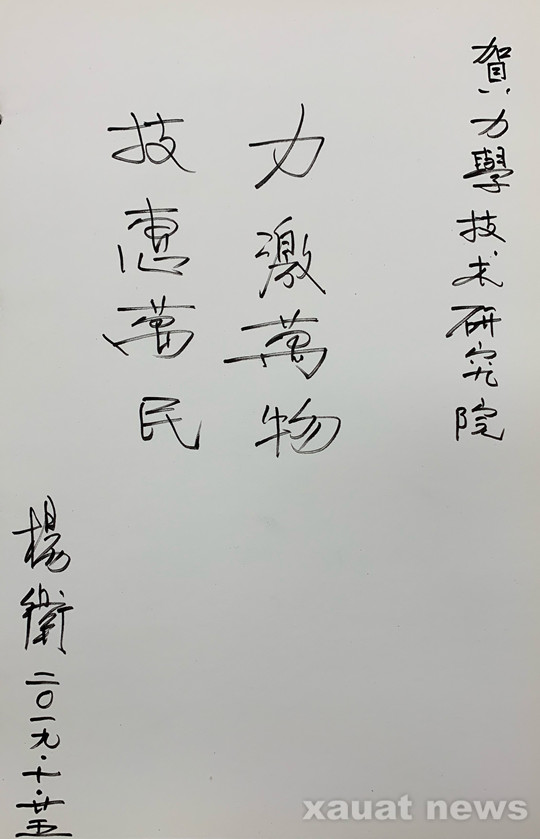 賀力學技术研究院
力激萬物
技惠萬民
楊衛
二〇一九·十·廿五
xauat news